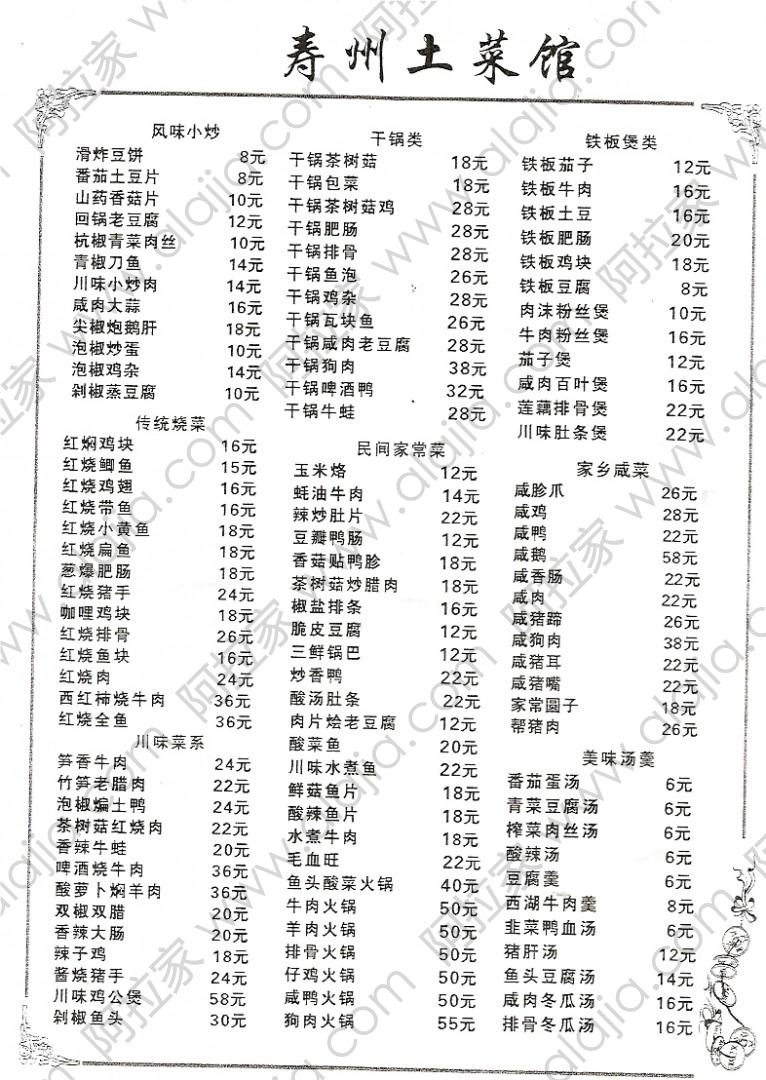 寿州土菜馆
风味小炒
滑炸豆饼 8元
番茄土豆片 8元
山药香菇片 10元
回锅老豆腐 12元
杭椒青菜肉丝 10元
青椒刀鱼 14元
川味小炒肉 14元
咸肉大蒜 16元
尖椒炮鹅肝 18元
泡椒炒蛋 10元
泡椒鸡杂 14元
剁椒蒸豆腐 10元
传统烧菜
红焖鸡块 16元
红烧鲫鱼 15元
红烧鸡翅 16元
红烧带鱼 16元
红烧小黄鱼 18元
红烧扁鱼 18元
葱爆肥肠 18元
红烧猪手 24元
咖哩鸡块 18元
红烧排骨 26元
红烧鱼块 16元
红烧肉 24元
西红柿烧牛肉 36元
红烧全鱼 36元
川味菜系
笋香牛肉 24元
竹笋老腊肉 22元
泡椒煸土鸭 24元
茶树菇红烧肉 22元
香辣牛蛙 20元
啤酒烧牛肉 36元
酸萝卜焖羊肉 36元
双椒双腊 20元
香辣大肠 20元
辣子鸡 18元
酱烧猪手 24元
川味鸡公煲 58元
剁椒鱼头 30元
干锅类
干锅茶树菇 18元
干锅包菜 18元
干锅茶树菇鸡 28元
干锅肥肠 28元
干锅排骨 28元
干锅鱼泡 26元
干锅鸡杂 28元
干锅瓦块鱼 26元
干锅咸肉老豆腐 28元
干锅狗肉 38元
干锅啤酒鸭 32元
干锅牛蛙 28元
民间家常菜
玉米烙 12元
蚝油牛肉 14元
辣炒肚片 22元
豆瓣鸭肠 12元
香菇贴鸭胗 18元
茶树菇炒腊肉 18元
椒盐排条 16元
脆皮豆腐 12元
三鲜锅巴 12元
炒香鸭 22元
酸汤肚条 22元
肉片烩老豆腐 12元
酸菜鱼 20元
川味水煮鱼 22元
鲜菇鱼片 18元
酸辣鱼片 18元
水煮牛肉 18元
毛血旺 22元
鱼头酸菜火锅 40元
牛肉火锅 50元
羊肉火锅 50元
排骨火锅 50元
仔鸡火锅 50元
咸鸭火锅 50元
狗肉火锅 55元
铁板煲类
铁板茄子 12元
铁板牛肉 16元
铁板土豆 16元
铁板肥肠 20元
铁板鸡块 18元
铁板豆腐 8元
肉沫粉丝煲 10元
牛肉粉丝煲 16元
茄子煲 12元
咸肉百叶煲 16元
莲藕排骨煲 22元
川味肚条煲 22元
家乡咸菜
咸胗爪 26元
咸鸡 28元
咸鸭 22元
咸鹅 58元
咸香肠 22元
咸肉 22元
咸猪蹄 26元
咸狗肉 38元
咸猪耳 22元
咸猪嘴 22元
家常圆子 18元
帮猪肉 26元
美味汤羹
番茄蛋汤 6元
青菜豆腐汤 6元
榨菜肉丝汤 6元
酸辣汤 6元
豆腐羹 6元
西湖牛肉羹 8元
韭菜鸭血汤 6元
猪肝汤 12元
鱼头豆腐汤 14元
咸肉冬瓜汤 16元
排骨冬瓜汤 16元
阿拉家 www.alajia.com